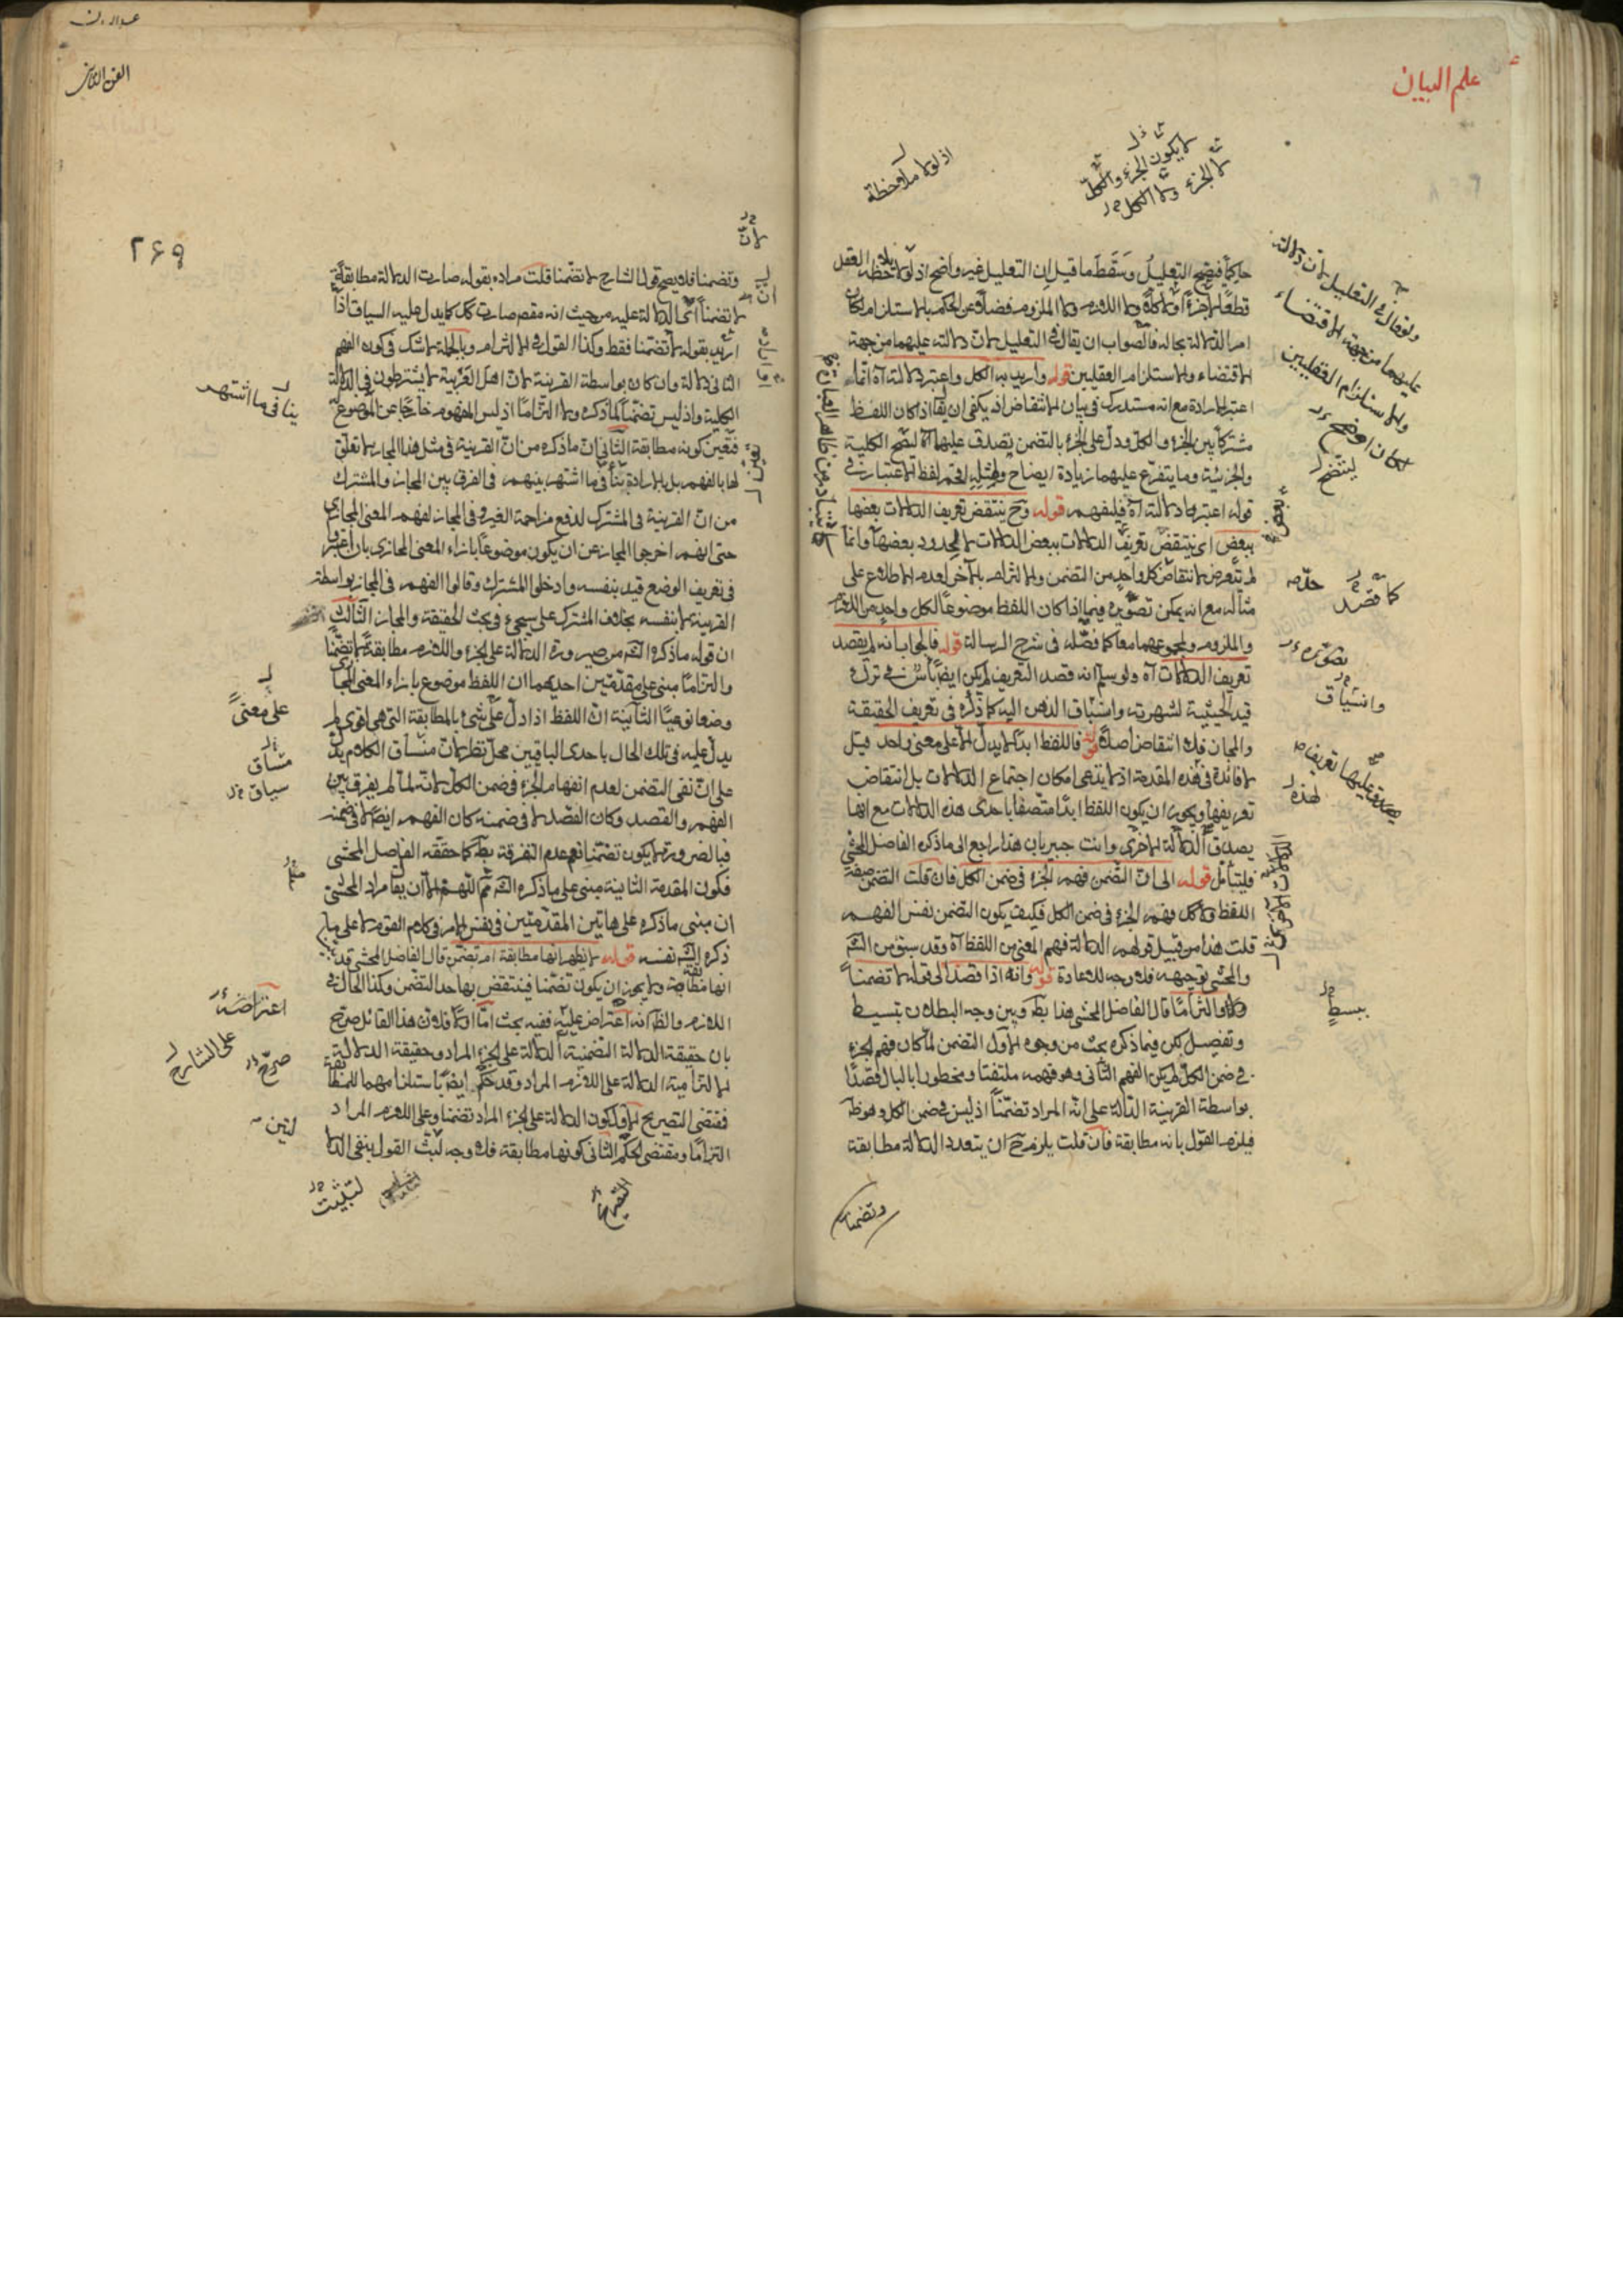 علم البيان
حاكما فيصح التعليل وسقط ما قيل ان التعليل غير واضح اذ لولا ملاحظة العقل
قطعا لا جزء ولا كل ولا اللازم ولا الملزوم فضلا عن الحكم بالاستلزام لكان
امر الدلالة بحاله فالصواب ان يقال في التعليل لان دلالته عليهما من جهة
الاقتضاء والاستلزام العقليين قوله واريد به الكل واعتبر دلالته آه انما
اعتبر الارادة مع انه مستدرك في بيان الانتقاض اذ يكفي ان يقا اذا كان اللفظ
مشتركا بين الجزء والكل ودل على الجزء بالتضمن يصدق عليها آه ليصح الكلية
والجزئية وما يتفرع عليهما زيادة ايضاح ولمثله اقحم لفظ الاعتبار في
قوله اعتبر دلالته آه فليفهم قوله وح ينتقض تعريف الدلالات بعضها
ببعض اي ينتقض تعريف الدلالات ببعض الدلالات لا المحدود ببعضها وانما
لم يتعرض لانتقاض كل واحد من التضمن والالتزام بالآخر لعدم الاطلاع على
مثاله مع انه يمكن تصويره فيما اذا كان اللفظ موضوعا لكل واحد من اللازم
والملزوم ولمجموعهما معا كما فصله في شرح الرسالة قوله فالجواب انه لم يقصد
تعريف الدلالات آه ولو سلم انه قصد التعريف لم يكن ايضا بأس في ترك
قيد الحيثية لشهرته وانسياق الذهن اليه كما ذكره في تعريف الحقيقة
والمجاز فلا انتقاض اصلا قوله فاللفظ ابدا لا يدل الا على معنى واحد قيل
لا فائدة في هذه المقدمة اذ لا يدعى امكان اجتماع الدلالات بل انتقاض
تعريفها ويجوز ان يكون اللفظ ابدا متصفا باحدى هذه الدلالات مع انها
يصدق الدلالة الاخرى وانت خبير بان هذا راجع الى ما ذكره الفاضل المحشي
فليتأمل قوله الى ان التضمن فهم الجزء في ضمن الكل فان قلت التضمن صفة
اللفظ ولا كل فهم الجزء في ضمن الكل فكيف يكون التضمن نفس الفهم
قلت هذا من قبيل قولهم الدلالة فهم المعنى من اللفظ آه وقد سبق من الش
والمحشي توجيهه فلا وجه للاعادة قوله وانه اذا قصد الى قوله لا تضمنا
ولا التزاما قال الفاضل المحشي هذا بط وبين وجه البطلان بتبسيط
وتفصيل لكن فيما ذكره بحث من وجوه الاول التضمن لما كان فهم الجزء
في ضمن الكل لم يكن الفهم الثاني وهو فهمه ملتفتا ومخطورا بالبال قصدا
بواسطة القرينة الدالة على انه المراد تضمنا اذ ليس في ضمن الكل وهو ظ
فيلزم القول بانه مطابقة فان قلت يلزم ح ان يتعدد الدلالة مطابقة
وتضمنا
اذ لولا ملاحظة
لا يكون الجزء والكل
لا الجزء ولا الكل
ولو قال في التعليل لان دلالته
عليهما من جهة الاقتضاء
والاستلزام العقليين
لكان اوضح
ليتضح
تصويره
وانسياق
يصدق عليها تعريف
لهذه
ببسط
الفن الثاني
٢۶٩
وتضمنا فلا يصح قول الشارح لا تضمنا قلت مراده بقوله صارت الدلالة مطابقة
لا تضمنا ان الدلالة عليه من حيث انه مقصد صارت كل كما يدل عليه السياق اذا
اريد بقوله لا تضمنا فقط وكذا القول في الالتزام وبالجملة لا شك في كون الفهم
الثاني دلالة وان كان بواسطة القرينة لان اهل العربية لا يشترطون في الدلالة
الكلية واذ ليس تضمنا لما ذكره ولا التزاما اذ ليس المفهوم خارجا عن الموضوع له
فتعين كونه مطابقة الثاني ان ما ذكره من ان القرينة في مثل هذا المجاز لا تعلق
لها بالفهم بل بالارادة ينافي ما اشتهر بينهم في الفرق بين المجاز والمشترك
من ان القرينة في المشترك لدفع مزاحمة الغير وفي المجاز لفهم المعنى المجازي
حتى انهم اخرجوا المجاز عن ان يكون موضوعا بازاء المعنى المجازي بان اعتبروا
في تعريف الوضع قيد بنفسه وادخلوا المشترك وقالوا الفهم في المجاز بواسطة
القرينة لا بنفسه بخلاف المشترك على سيجيء في بحث الحقيقة والمجاز الثالث
ان قوله ما ذكره الش من صيرورة الدلالة على الجزء واللازم مطابقة لا تضمنا
والتزاما مبني على مقدمتين احديهما ان اللفظ موضوع بازاء المعنى المجازي
وضعا نوعيا الثانية ان اللفظ اذا دل على شيء بالمطابقة التي هي اقوى لم
يدل عليه في تلك الحال باحدى الباقيين محل نظر لان منساق الكلام يدل
على ان نفي التضمن لعدم انفهام الجزء في ضمن الكل لانه لما لم يفرق بين
الفهم والقصد وكان القصد لا في ضمنه كان الفهم ايضا لا في ضمنه
فبالضرورة لا يكون تضمنا نعم عدم التفرقة بط كما حققه الفاضل المحشي
فكون المقدمة الثانية مبنى على ما ذكره الش ثم اللهم الا ان يقا مراد المحشي
ان مبنى ما ذكره على هاتين المقدمتين في نفس الامر في كلام القوم لا على ما
ذكره الش نفسه قوله لا يظهر انها مطابقة ام تضمن قال الفاضل المحشي قد
انها مطابقة ولا يجوز ان يكون تضمنا فينتقض بها حد التضمن وكذا الحال في
اللازم والظ انه اعتراض عليه ففيه بحث اما اولا فلان هذا القائل صرح
بان حقيقة الدلالة التضمنية الدلالة على الجزء المراد وحقيقة الدلالة
الالتزامية الدلالة على اللازم المراد وقد حكم ايضا باستلزامهما للمطابقة
فمقتضى التصريح الاول كون الدلالة على الجزء المراد تضمنا وعلى اللازم المراد
التزاما ومقتضى الحكم الثاني كونها مطابقة فلا وجه لبث القول بنفي الدلا
لان
ينافي ما اشتهر
على معنى
منساق
سياق
اعتراضه
على الشارح
صرح